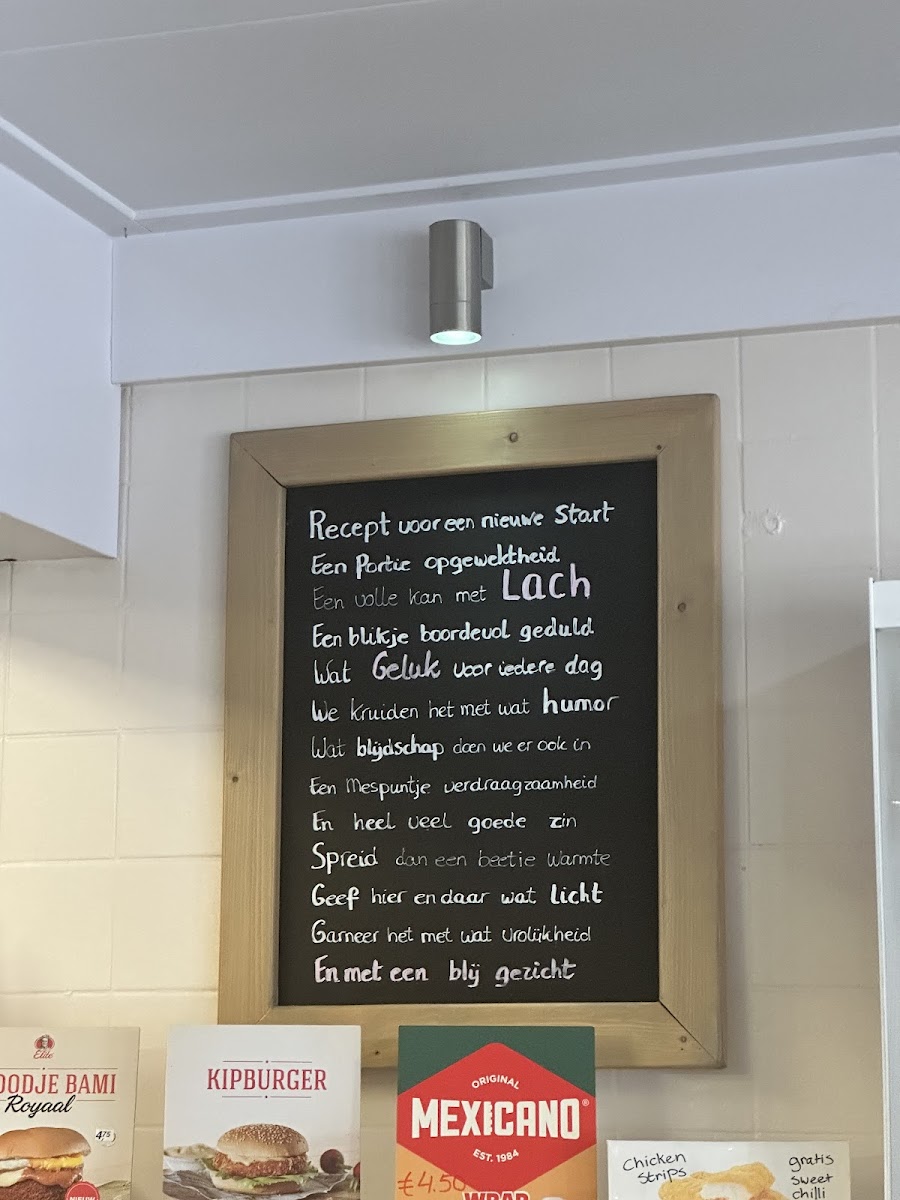 Recept voor een nieuwe Start
Een Portie opgewektheid
Een volle kan met Lach
Een blikje boordevol geduld
Wat Geluk voor iedere dag
We kruiden het met wat humor
Wat blijdschap doen we er ook in
Een Mespuntje verdraagzaamheid
En heel veel goede zin
Spreid dan een beetje warmte
Geef hier en daar wat licht
Garneer het met wat vrolijkheid
En met een blij gezicht
Elite
OODJE BAMI
Royaal
4,75
NIEUW
KIPBURGER
ORIGINAL
MEXICANO®
EST. 1984
€4.50
WRAP
Chicken
strips
gratis
sweet
chilli